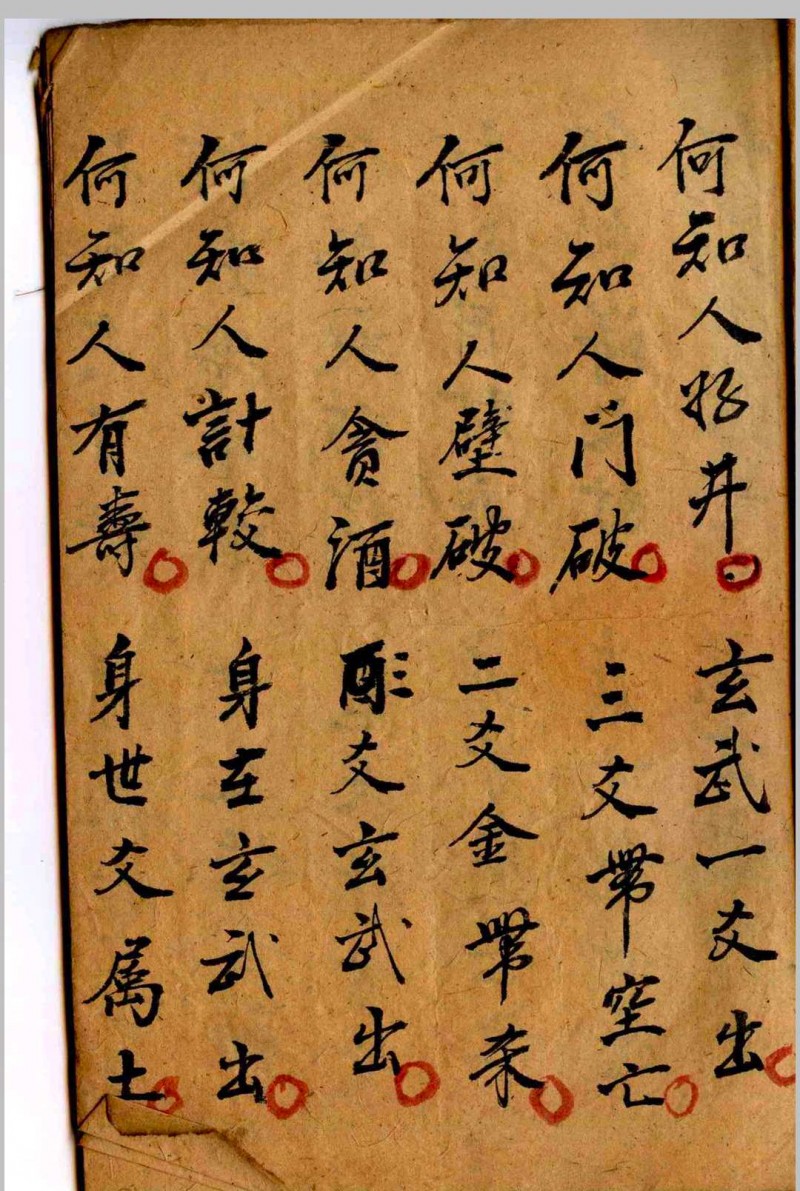 何知人井 玄武一爻出
何知人门破 三爻帶空亡
何知人壁破 二爻金帶杀
何知人貪酒 爻玄武出
何知人計較 身在玄武出
何知人有壽 身世爻属土